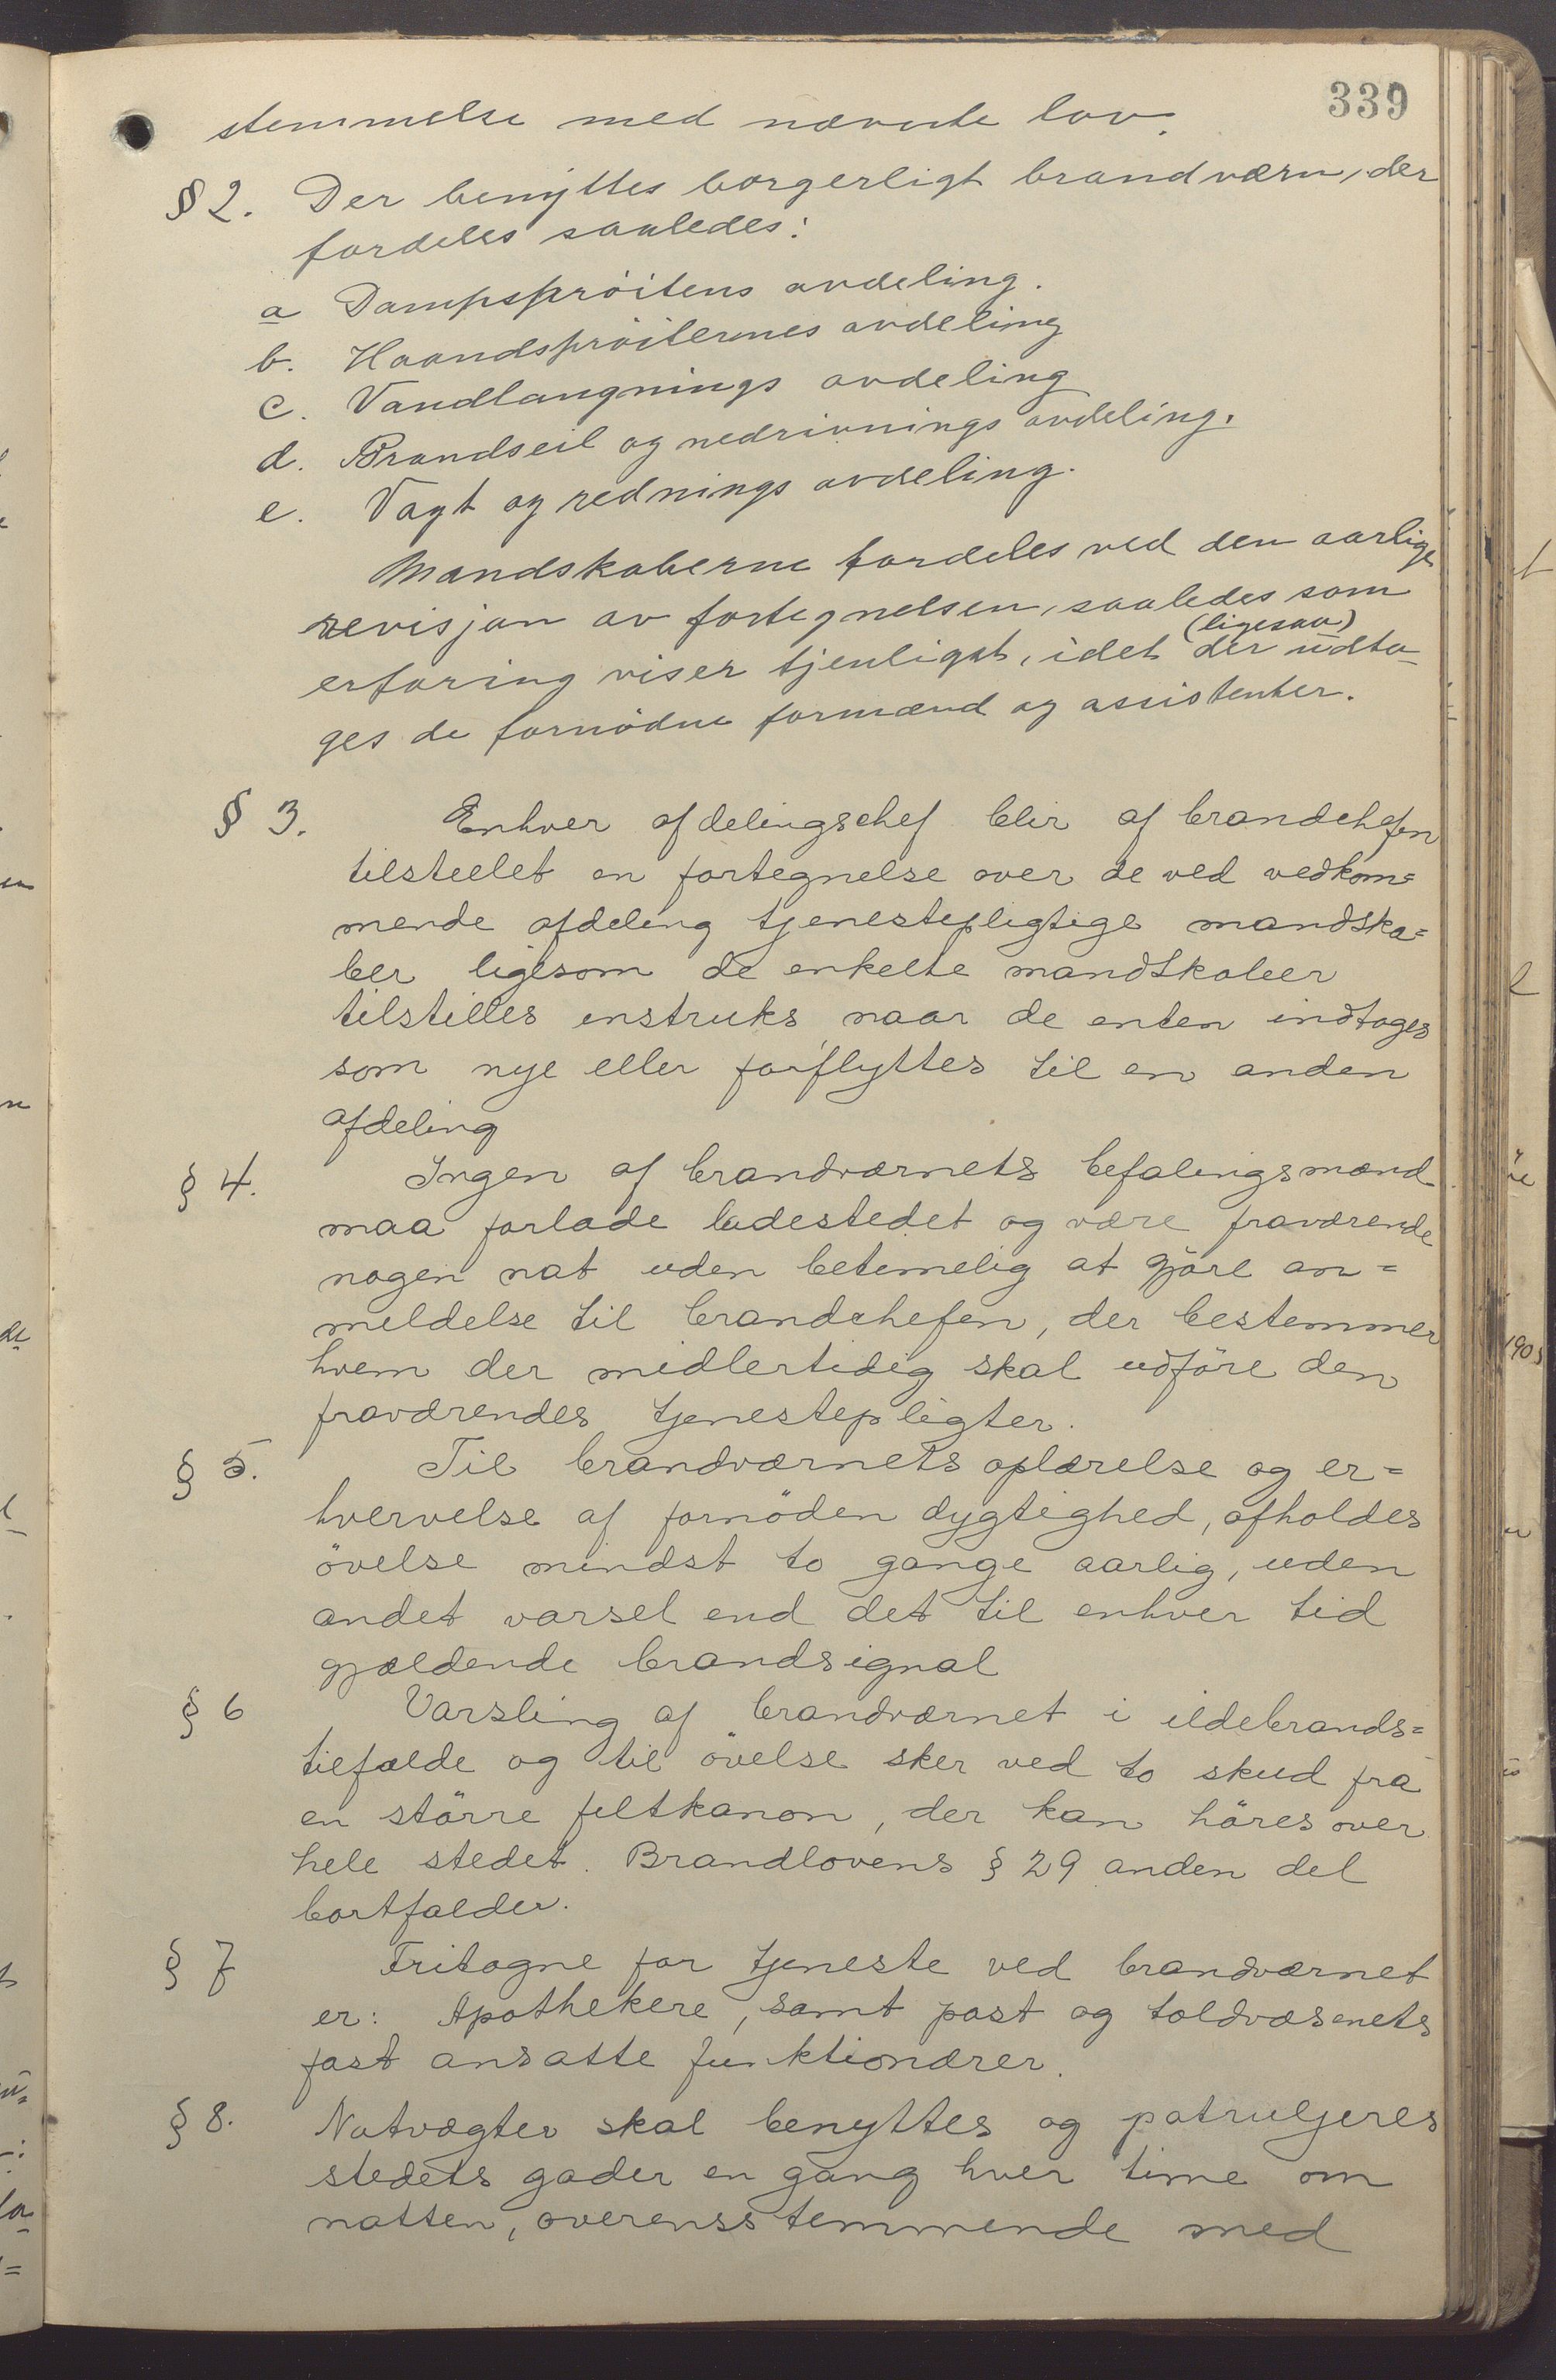 339
stemmelse med nævnte lov.
§ 2. Der benyttes borgerligt brandværn, der
fordeles saaledes:
a Dampsprøitens avdeling.
b. Haandsprøiternes avdeling
c. Vandlangnings avdeling
d. Brandseil og nedrivnings avdeling.
e. Vagt og rednings avdeling.
Mandskaberne fordeles ved den aarlige
revisjon av fortegnelsen, saaledes som
erfaring viser tjenligst, idet der (ligesaa) udta-
ges de fornødne formænd og assistenter.
§ 3. Enhver afdelingschef blir af brandchefen
tilstellet en fortegnelse over de ved vedkom=
mende afdeling tjenestepligtige mandska=
ber ligesom de enkelte mandskaber
tilstilles instruks naar de enten indtages
som nye eller forflyttes til en anden
afdeling
§ 4. Ingen af brandværnets befalingsmænd
maa forlade ladestedet og være fraværende
nogen nat uden betimelig at gjöre an=
meldelse til brandchefen, der bestemmer
hvem der midlertidig skal udföre den
fraværendes tjenestepligter.
§ 5. Til brandværnets oplærelse og er=
hvervelse af fornöden dygtighed, afholdes
övelse mindst to gange aarlig, uden
andet varsel end det til enhver tid
gjældende brandsignal
§ 6 Varsling af brandværnet i ildebrands=
tilfælde og til övelse sker ved to skud fra
en större feltkanon, der kan höres over
hele stedet. Brandlovens § 29 anden del
bortfalder.
§ 7 Fritagne for tjeneste ved brandværnet
er: Apothekere, samt post og toldvæsenets
fast ansatte funktionærer.
§ 8. Natvægter skal benyttes og patruljeres
stedets gader en gang hver time om
natten, overensstemmende med